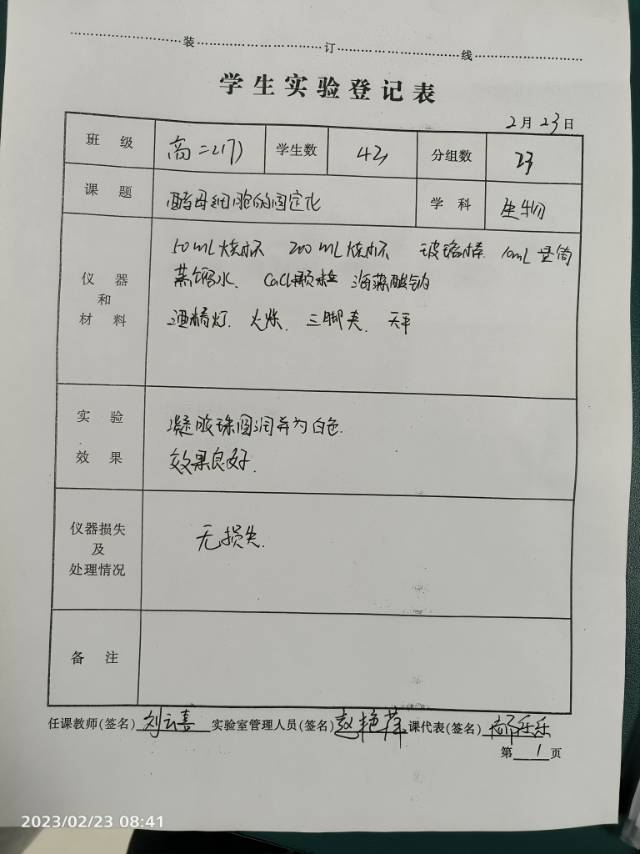 装 订 线
学生实验登记表
2月23日
班级 高二(7) 学生数 42 分组数 23
课题 酵母细胞的固定化 学科 生物
仪器和材料
50mL烧杯 200mL烧杯 玻璃棒 10mL量筒
蒸馏水. CaCl₂颗粒 海藻酸钠
酒精灯. 火柴. 三脚夹. 天平
实验效果
凝胶珠圆润并为白色.
效果良好.
仪器损失及处理情况
无损失.
备注
任课教师(签名) 刘云喜 实验室管理人员(签名) 赵艳萍 课代表(签名) 乐乐
第 1 页
2023/02/23 08:41